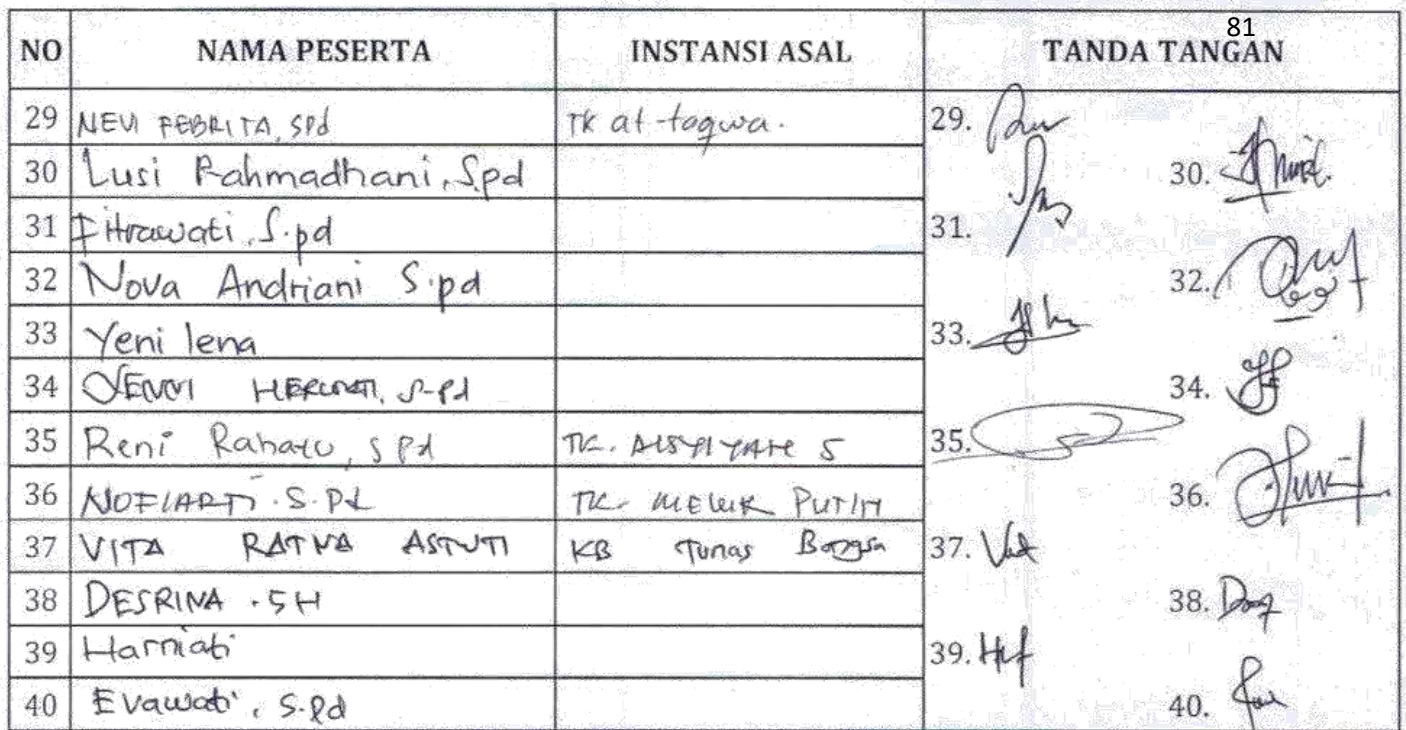 81
NO NAMA PESERTA INSTANSI ASAL TANDA TANGAN
29 NEVI FEBRITA, SPd TK at-taqwa. 29.
30 Lusi Rahmadhani, Spd 30.
31 Fitrawati, S.pd 31.
32 Nova Andriani S.pd 32.
33 Yeni lena 33.
34 S.Pd 34.
35 Reni Rahayu, SPd TK. AISYIYAH 5 35.
36 NOFIARTI. S.Pd TK. PUTIH 36.
37 VITA RATNA ASTUTI KB Tunas Bangsa 37.
38 DESRINA . SH 38.
39 Harniati 39.
40 Evawati, S.Pd 40.